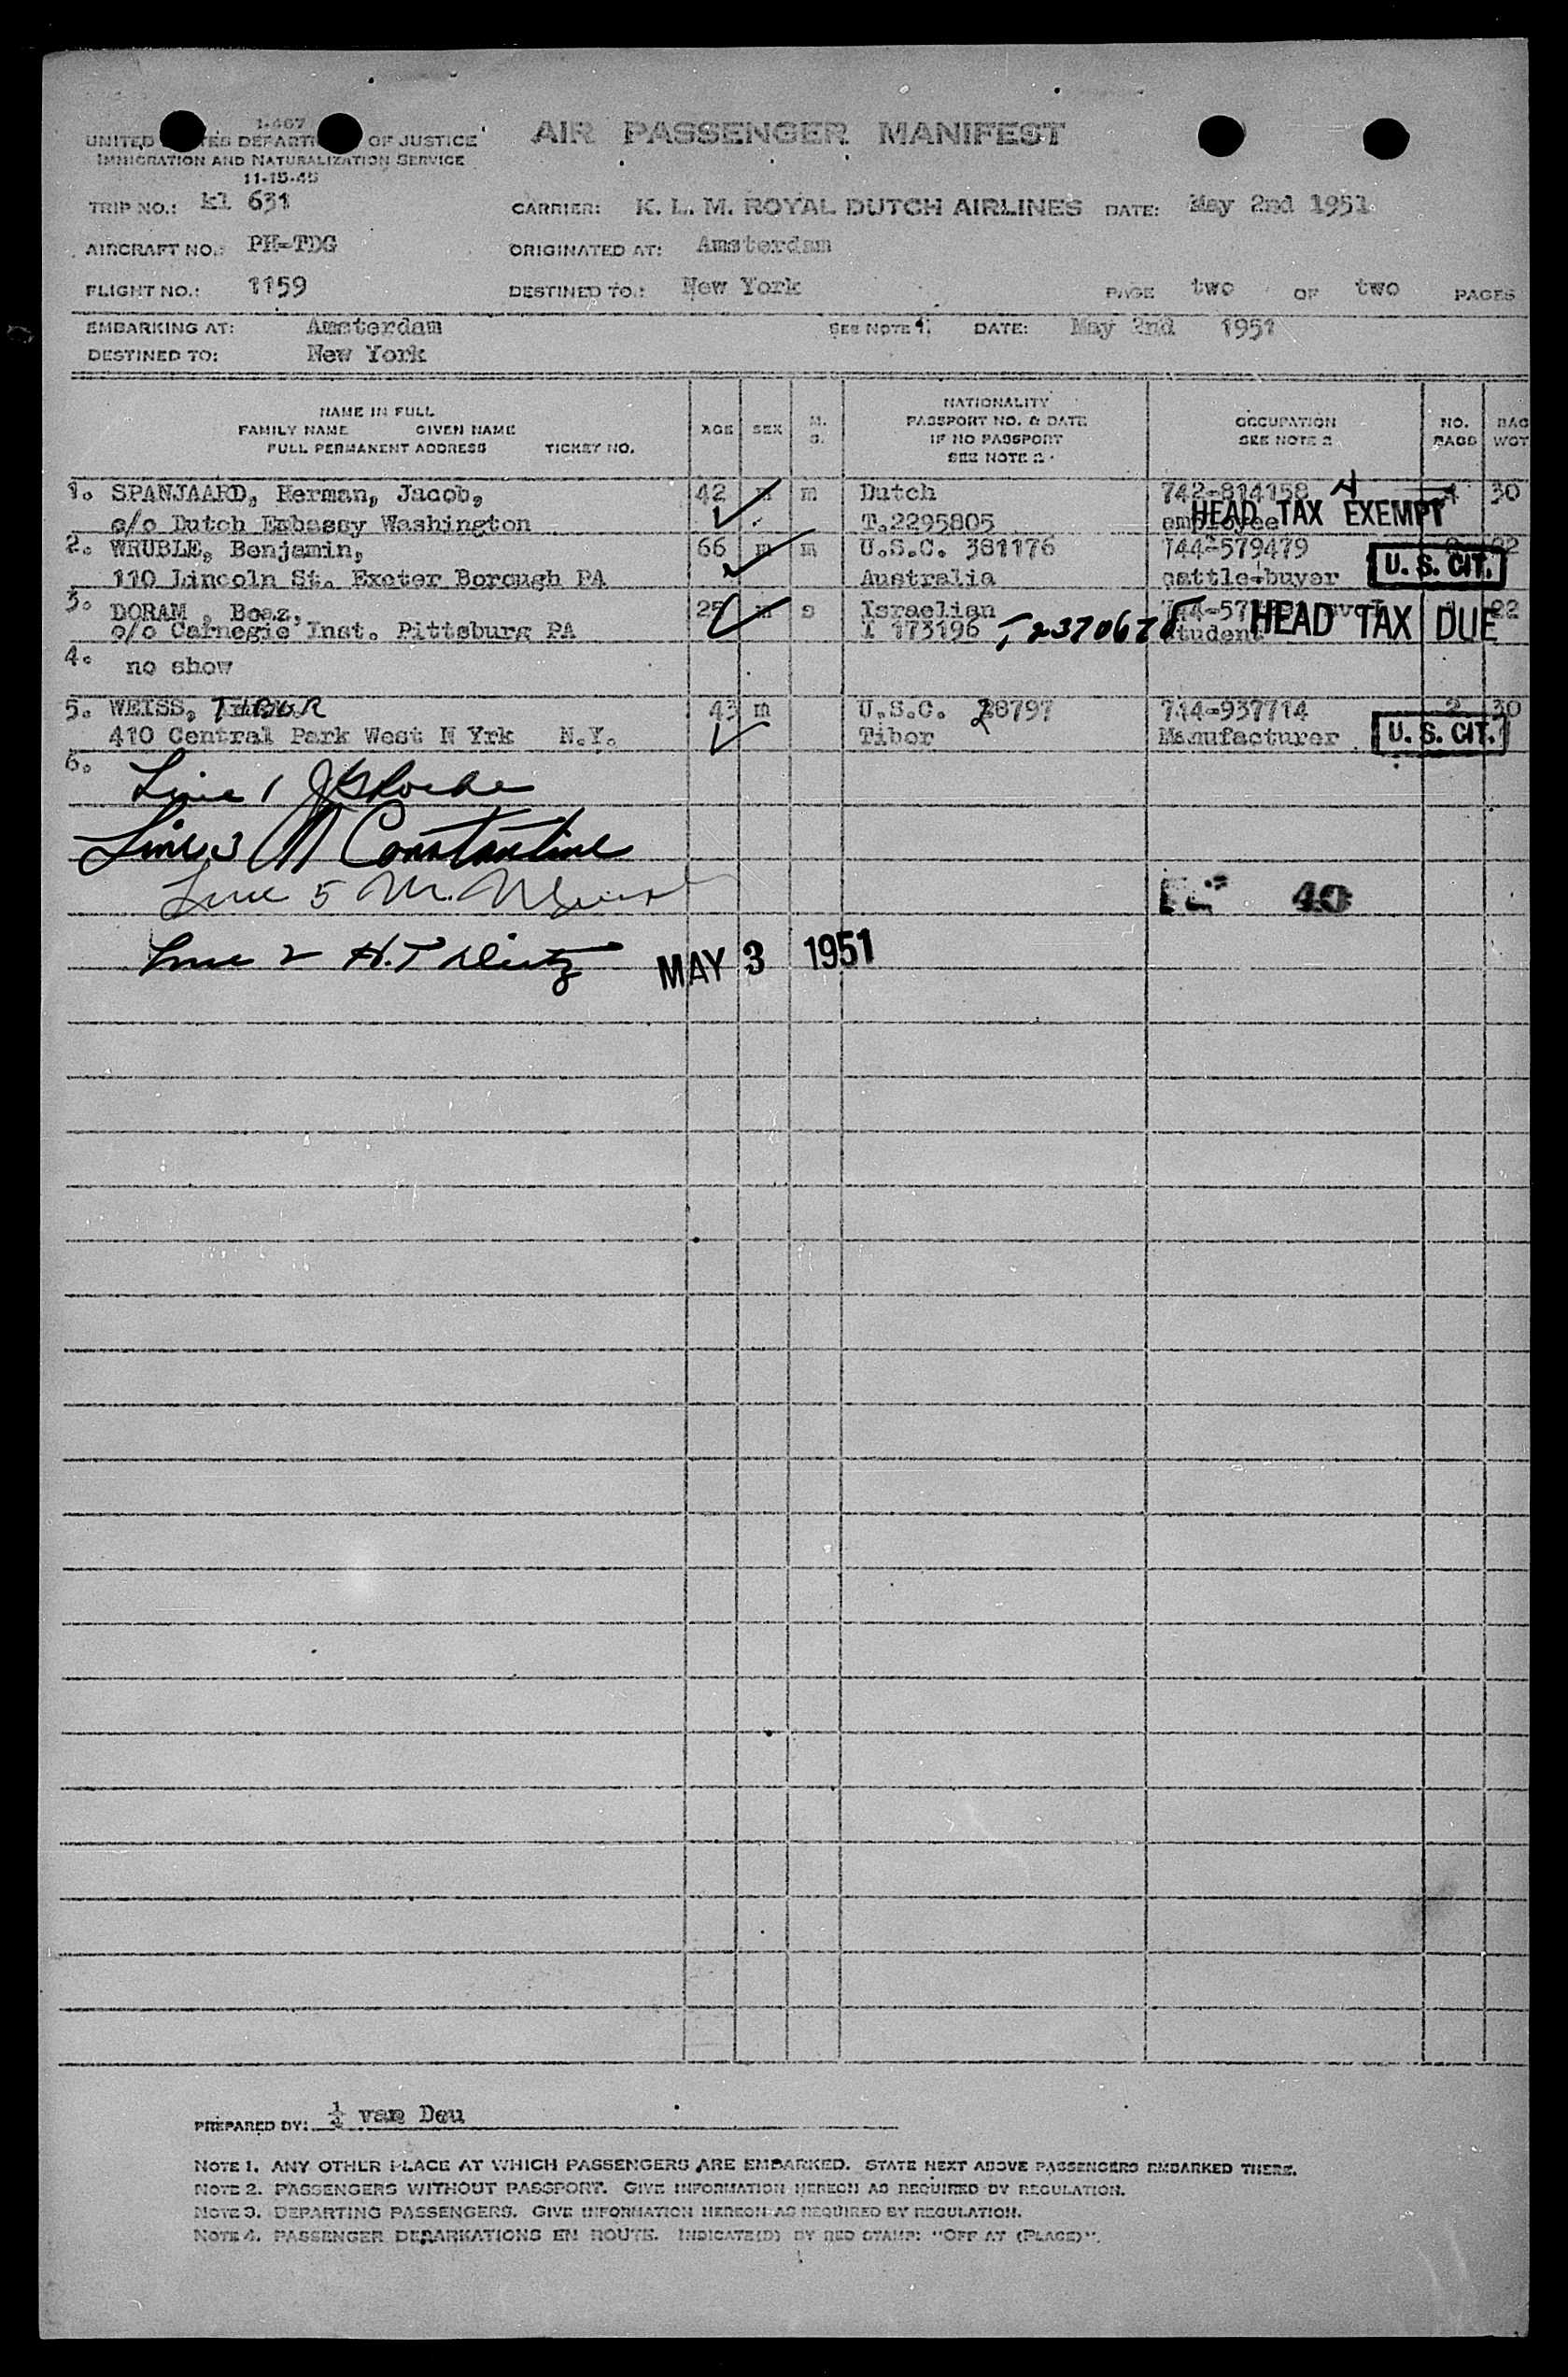 I-467
UNITED STATES DEPARTMENT OF JUSTICE
IMMIGRATION AND NATURALIZATION SERVICE
11-15-45
AIR PASSENGER MANIFEST
TRIP NO.: kl 631 CARRIER: K. L. M. ROYAL DUTCH AIRLINES DATE: May 2nd 1951
AIRCRAFT NO.: PH-TDG ORIGINATED AT: Amsterdam
FLIGHT NO.: 1159 DESTINED TO: New York PAGE two OF two PAGES
EMBARKING AT: Amsterdam SEE NOTE 1. DATE: May 2nd 1951
DESTINED TO: New York
NAME IN FULL
FAMILY NAME GIVEN NAME
FULL PERMANENT ADDRESS TICKET NO.
AGE SEX M. S.
NATIONALITY
PASSPORT NO. & DATE
IF NO PASSPORT
SEE NOTE 2
OCCUPATION
SEE NOTE 2
NO. BAGS BAG WGT
1. SPANJAARD, Herman, Jacob, 42 m m Dutch 742-814158 4 30
c/o Dutch Embassy Washington T.2295805 employee HEAD TAX EXEMPT
2. WRUBLE, Benjamin, 66 m m U.S.C. 381176 744-579479 22
110 Lincoln St. Exeter Borough PA Australia cattle-buyer U. S. CIT.
3. DORAM, Boaz, 25 m s Israelian 22
c/o Carnegie Inst. Pittsburg PA I 173196 T2370678 student HEAD TAX DUE
4. no show
5. WEISS, TIBOR 43 m U.S.C. 28797 744-937714 2 30
410 Central Park West N Yrk N.Y. Tibor Manufacturer U. S. CIT.
6.
Line 1
Line 3 Constantine
Line 5 M.
40
Line 2 H.T.
MAY 3 1951
PREPARED BY: van Deu
NOTE 1. ANY OTHER PLACE AT WHICH PASSENGERS ARE EMBARKED. STATE NEXT ABOVE PASSENGERS EMBARKED THERE.
NOTE 2. PASSENGERS WITHOUT PASSPORT. GIVE INFORMATION HEREON AS REQUIRED BY REGULATION.
NOTE 3. DEPARTING PASSENGERS. GIVE INFORMATION HEREON AS REQUIRED BY REGULATION.
NOTE 4. PASSENGER DEBARKATIONS EN ROUTE. INDICATE(D) BY RED STAMP: "OFF AT (PLACE)".